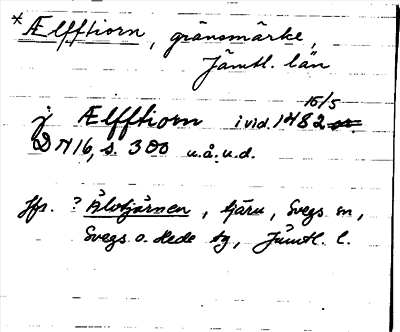 * Ælfftiorn, gränsmärke,
Jämtl. län
j Ælfftiorn i vid. 1482 15/5
DN 16, s. 300 u.å.u.d.
Jfr. ? Älvtjärnen, tjärn, Svegs sn,
Svegs o. Hede tg, Jämtl. l.